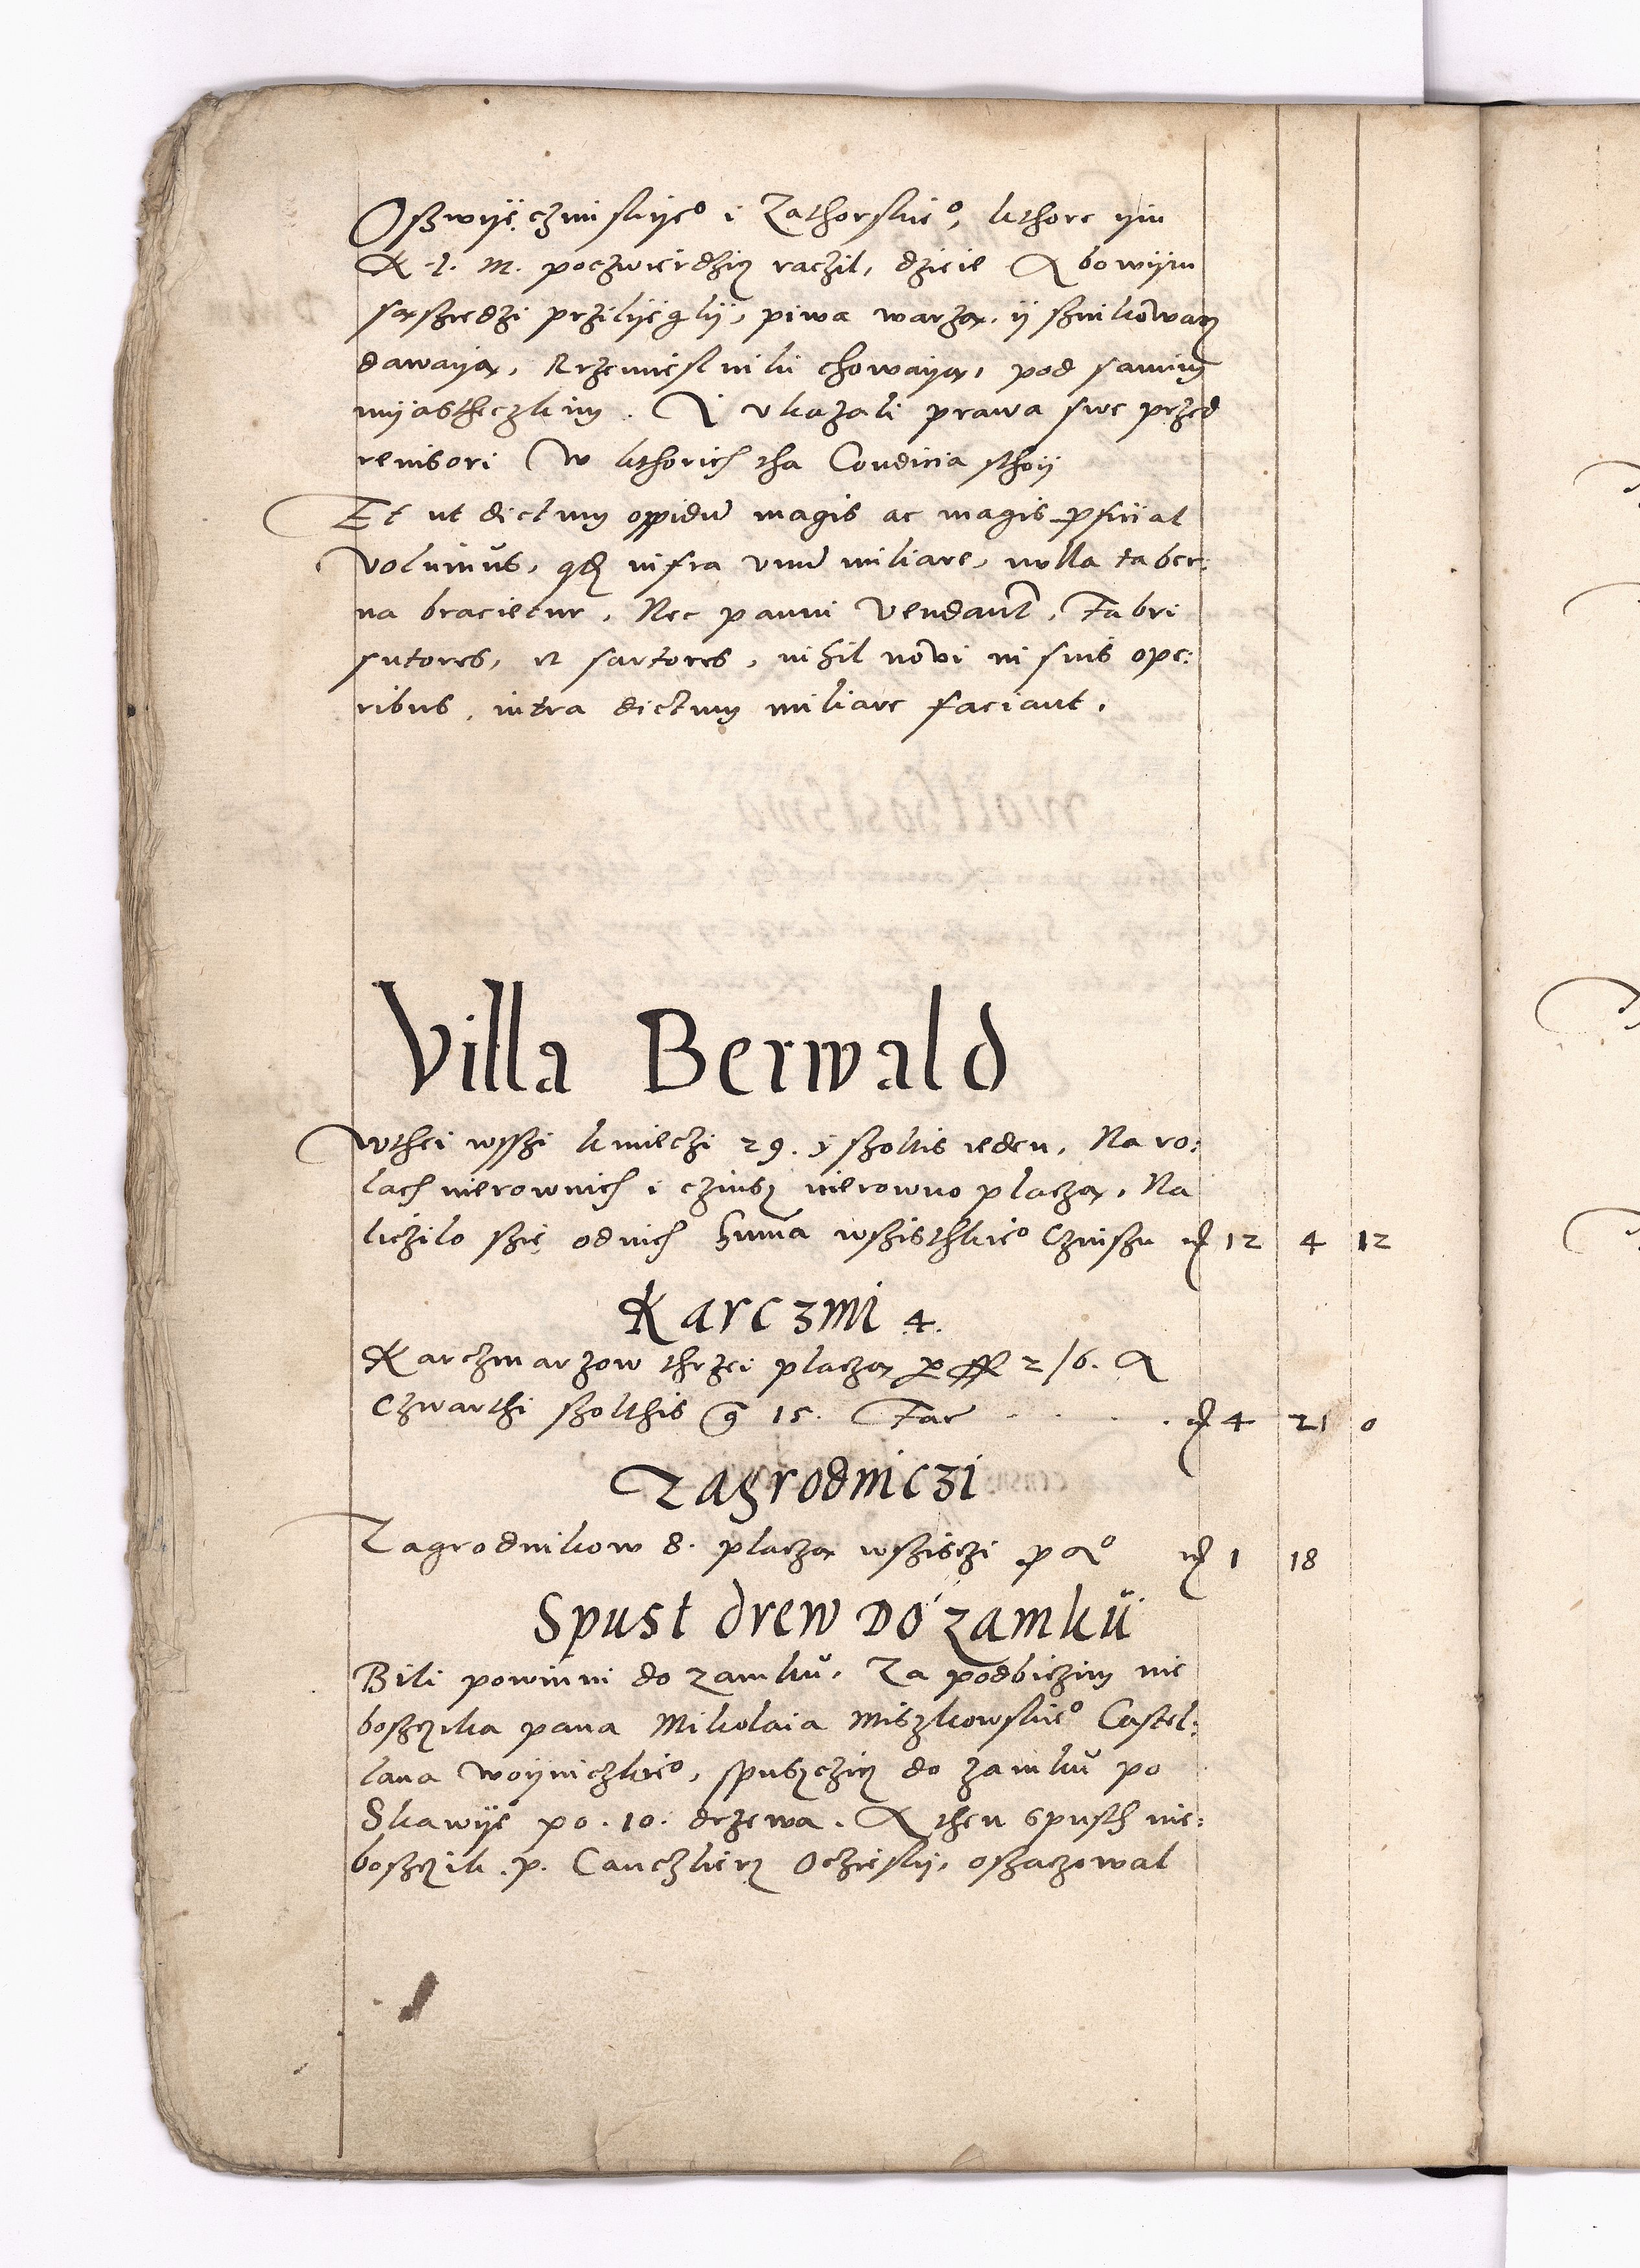 Oßwyęczimskyeº i Zathorskieº, kthore yim
K. J. M. poczwierdzicz raczil, dzieie A bowyim
sąsziedzi przilyęgly, piwa warzą, y szinkowacz
dawayą, Rzemieslniki chowayą, pod samim
myastheczkim. I vkazali prawa swe przed
revisori W kthorich tha Condicia sthoy
Et ut dictum oppidū magis ac magis pficiat
Volumus, qd infra vnū miliare, nulla taber:
na bracietur, Nec panni Vendant, Fabri
sutores, et sartores, nihil novi in suis ope:
ribus, intra dictum miliare faciant.
Villa Berwald
Wthei wsszi kmieczi 29. y szoltis ieden, Na ro:
lach nierownich i czinsz nierowno placzą, Na
liczilo szię odnich Sūma wszisthkieº Czinszu 12 4 12
Karczmi 4.
Karczmarzow thrzei placzą 2/6. A
Czwarthi szolthis 15. Fac 4 21 0
Zagrodniczi
Zagrodnikow 8. placzą wsziszczi 1 18
Spust drew Do zamkŭ
Bili powinni do zamkŭ, Za podbiczim nie
boszczika pana Mikolaia Miszkowskieº Castel:
lana Woyniczkieº, spusczicz do zamkŭ po
Skawye po. 10. drzewa. A then Spusth nie:
boszczik .p. Canczlierz Oczieski, oszaczowal